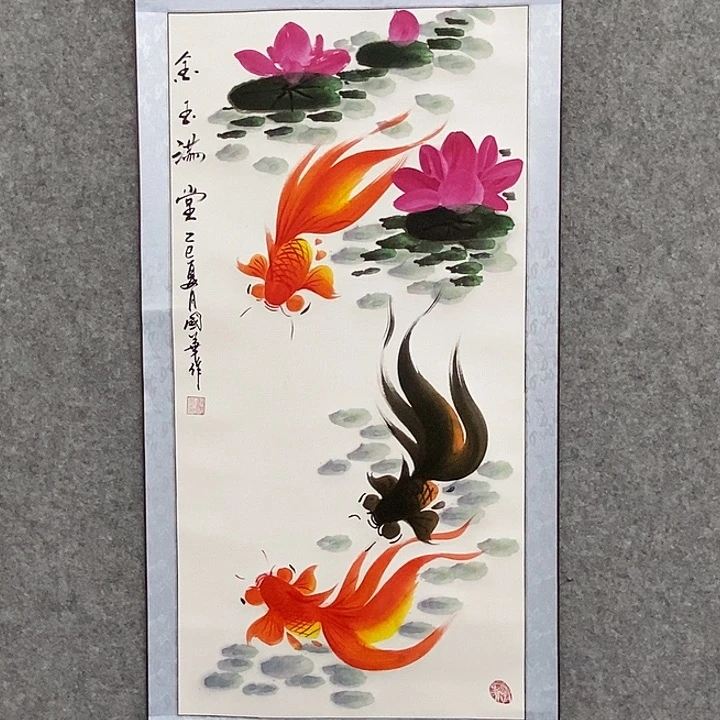 金玉满堂 乙巳夏月國華作